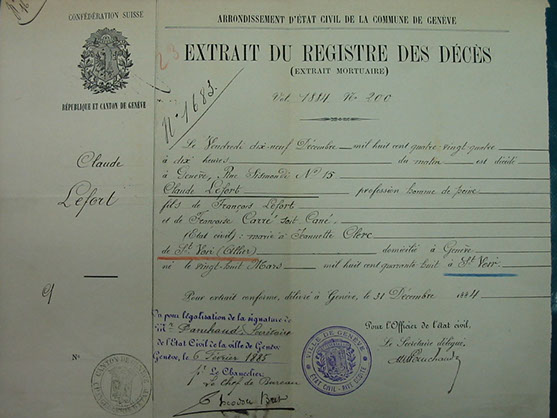 CONFÉDÉRATION SUISSE
RÉPUBLIQUE ET CANTON DE GENÈVE
Claude
Lefort
N°
ARRONDISSEMENT D'ÉTAT CIVIL DE LA COMMUNE DE GENÈVE
23
EXTRAIT DU REGISTRE DES DÉCÈS
(EXTRAIT MORTUAIRE)
N° 1683.
Vol. 1884 N° 200
Le Vendredi dix-neuf Décembre mil huit cent quatre vingt quatre
à dix heures du matin est décédé
à Genève, Rue Sismondi N° 15
Claude Lefort profession homme de peine
fils de François Lefort
et de Françoise Carré soit Cané,
(État civil): marié à Jeannette Clerc
de St Voir (Allier) domicilié à Genève
né le vingt-huit Mars mil huit cent quarante huit à St Voir
Pour extrait conforme, délivré à Genève, le 31 Décembre 1884
Vu pour légalisation de la signature de
Mr Secrétaire
de l'État Civil de la ville de Genève
Genève, le 6 Février 1885
pr Le Chancelier
Le Chef de Bureau
VILLE DE GENÈVE
ÉTAT CIVIL
Pour l'Officier de l'état civil,
Le Secrétaire délégué,